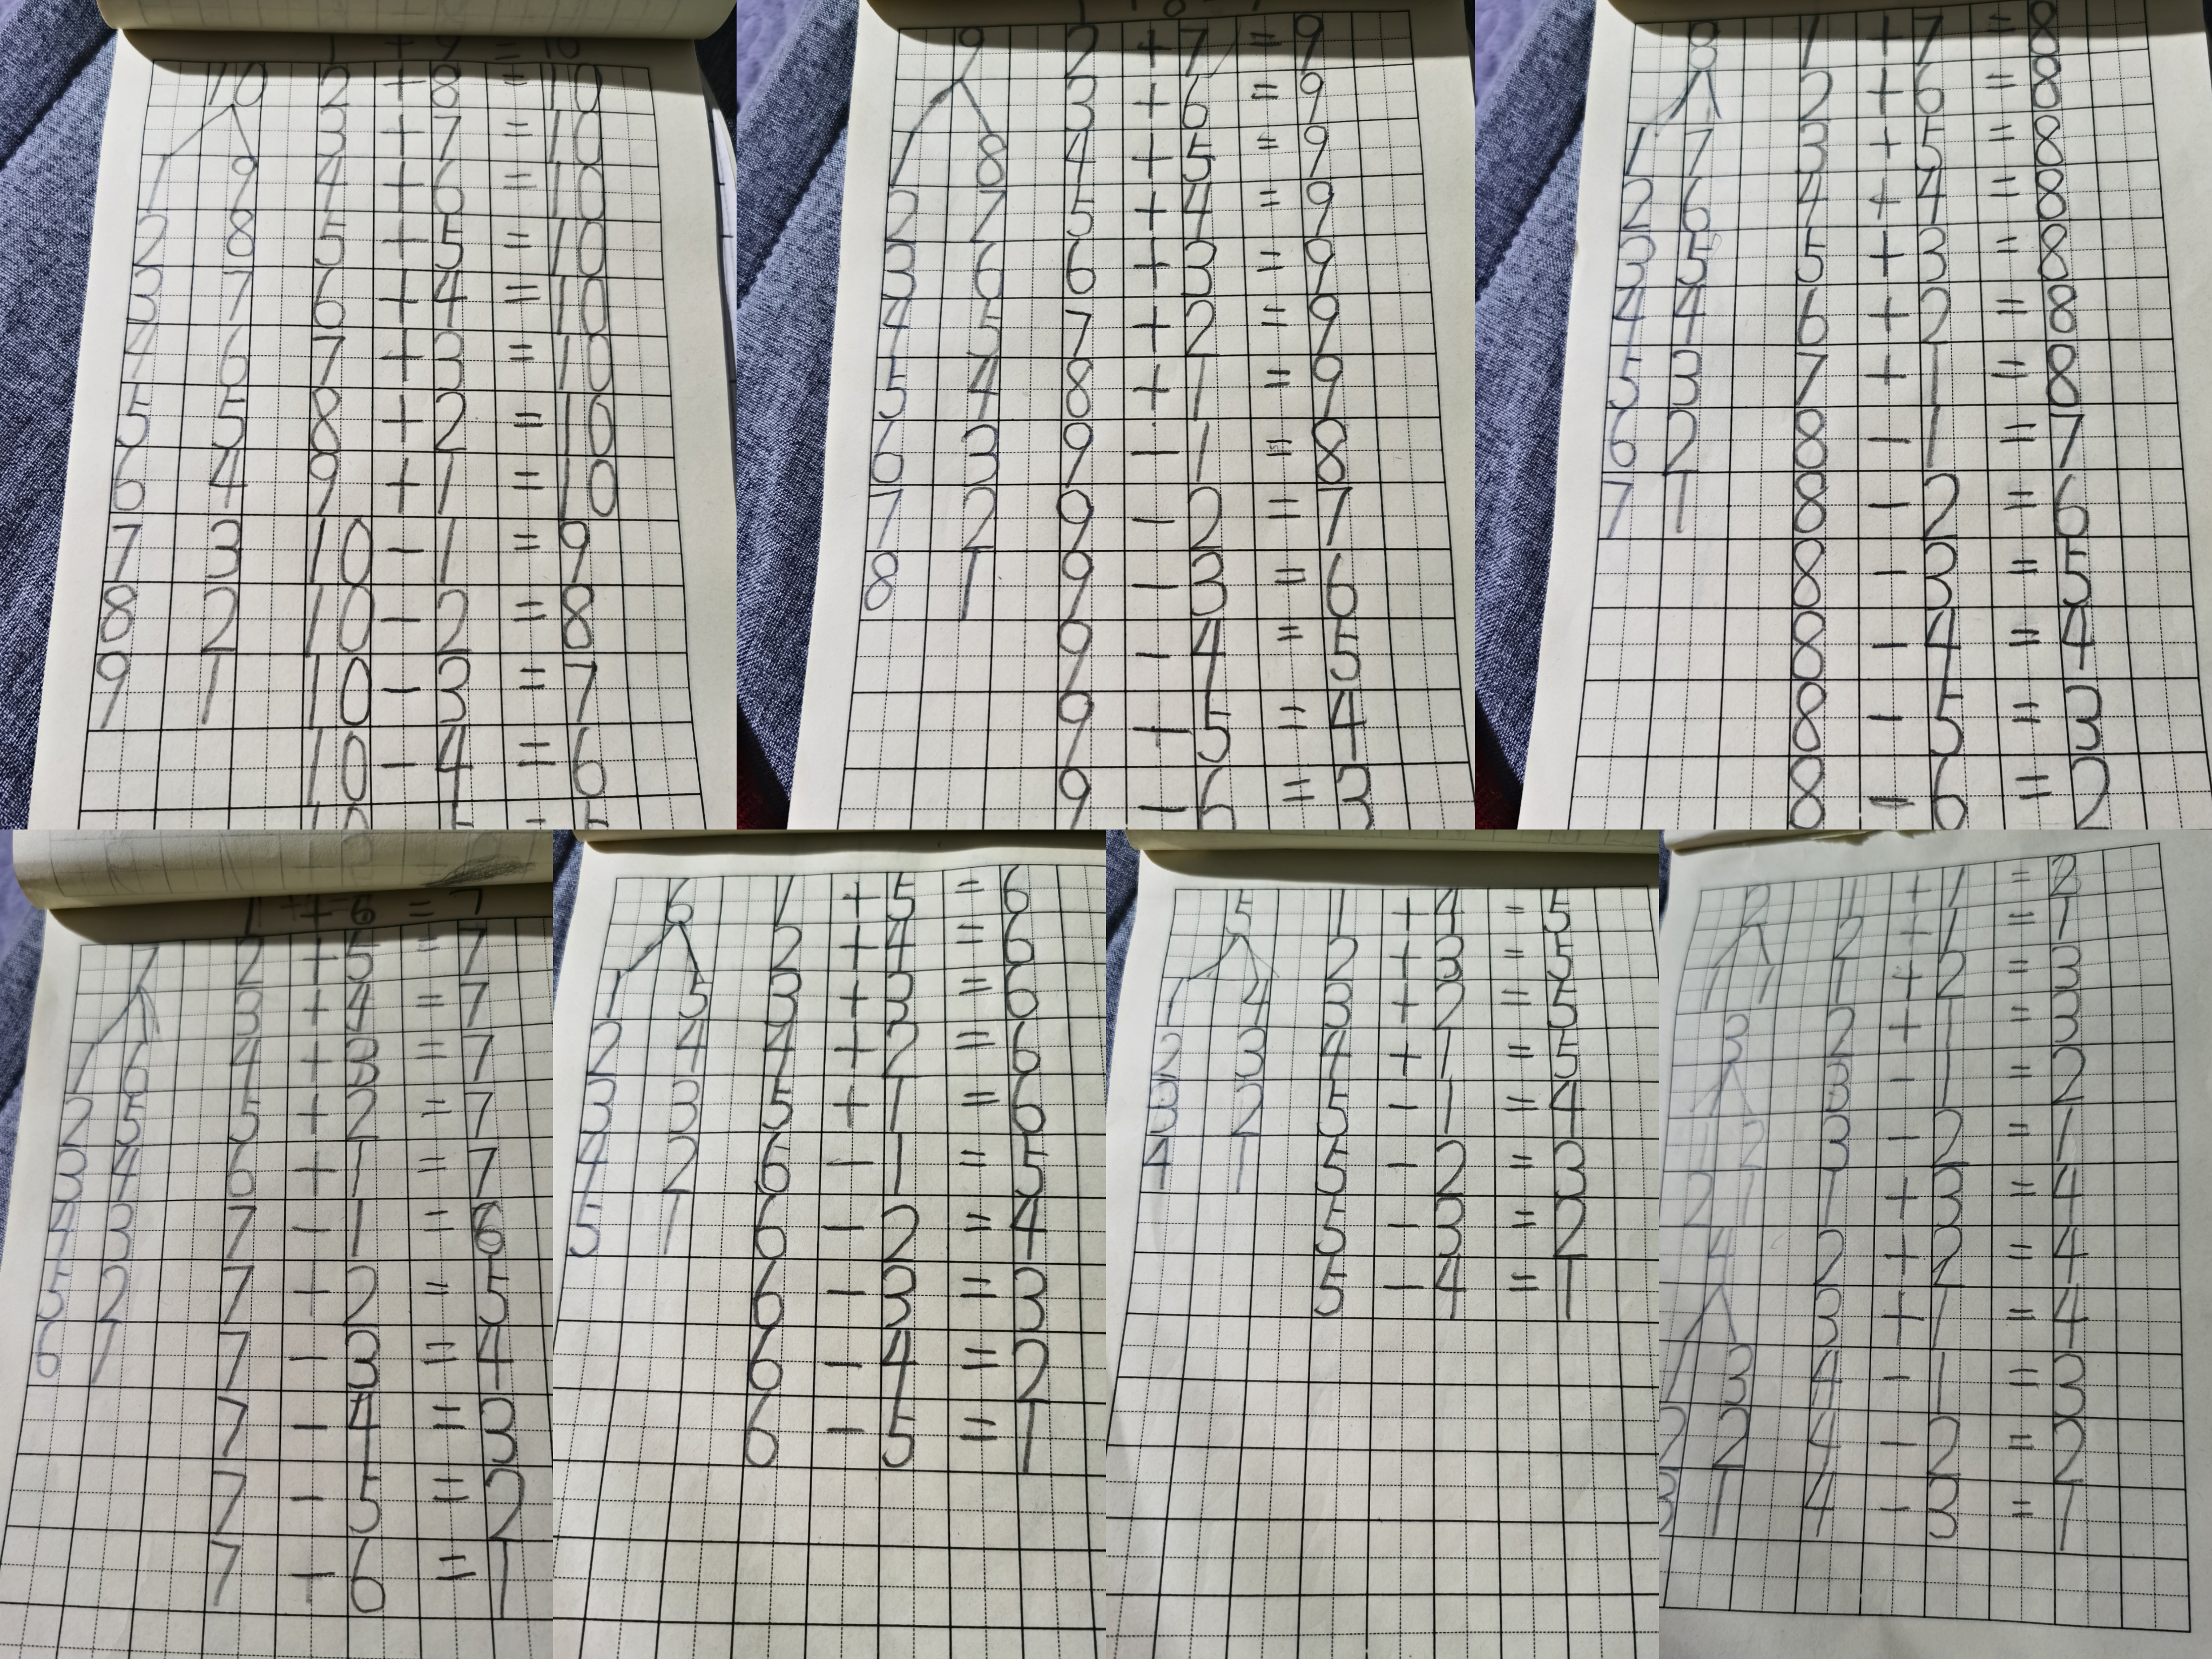 1 + 9 = 10
10 2 + 8 = 10
3 + 7 = 10
1 9 4 + 6 = 10
2 8 5 + 5 = 10
3 7 6 + 4 = 10
4 6 7 + 3 = 10
5 5 8 + 2 = 10
6 4 9 + 1 = 10
7 3 10 - 1 = 9
8 2 10 - 2 = 8
9 1 10 - 3 = 7
10 - 4 = 6
9 2 + 7 = 9
3 + 6 = 9
1 8 4 + 5 = 9
2 7 5 + 4 = 9
3 6 6 + 3 = 9
4 5 7 + 2 = 9
5 4 8 + 1 = 9
6 3 9 - 1 = 8
7 2 9 - 2 = 7
8 1 9 - 3 = 6
9 - 4 = 5
9 - 5 = 4
9 - 6 = 3
8 1 + 7 = 8
2 + 6 = 8
1 7 3 + 5 = 8
2 6 4 + 4 = 8
3 5 5 + 3 = 8
4 4 6 + 2 = 8
5 3 7 + 1 = 8
6 2 8 - 1 = 7
7 1 8 - 2 = 6
8 - 3 = 5
8 - 4 = 4
8 - 5 = 3
8 - 6 = 2
1 + 6 = 7
7 2 + 5 = 7
3 + 4 = 7
1 6 4 + 3 = 7
2 5 5 + 2 = 7
3 4 6 + 1 = 7
4 3 7 - 1 = 6
5 2 7 - 2 = 5
6 1 7 - 3 = 4
7 - 4 = 3
7 - 5 = 2
7 - 6 = 1
6 1 + 5 = 6
2 + 4 = 6
1 5 3 + 3 = 6
2 4 4 + 2 = 6
3 3 5 + 1 = 6
4 2 6 - 1 = 5
5 1 6 - 2 = 4
6 - 3 = 3
6 - 4 = 2
6 - 5 = 1
5 1 + 4 = 5
2 + 3 = 5
1 4 3 + 2 = 5
2 3 4 + 1 = 5
3 2 5 - 1 = 4
4 1 5 - 2 = 3
5 - 3 = 2
5 - 4 = 1
2 1 + 1 = 2
2 + 1 = 1
1 1 1 + 2 = 3
3 2 + 1 = 3
3 - 1 = 2
1 2 3 - 2 = 1
2 1 1 + 3 = 4
4 2 + 2 = 4
3 + 1 = 4
1 3 4 - 1 = 3
2 2 4 - 2 = 2
3 1 4 - 3 = 1